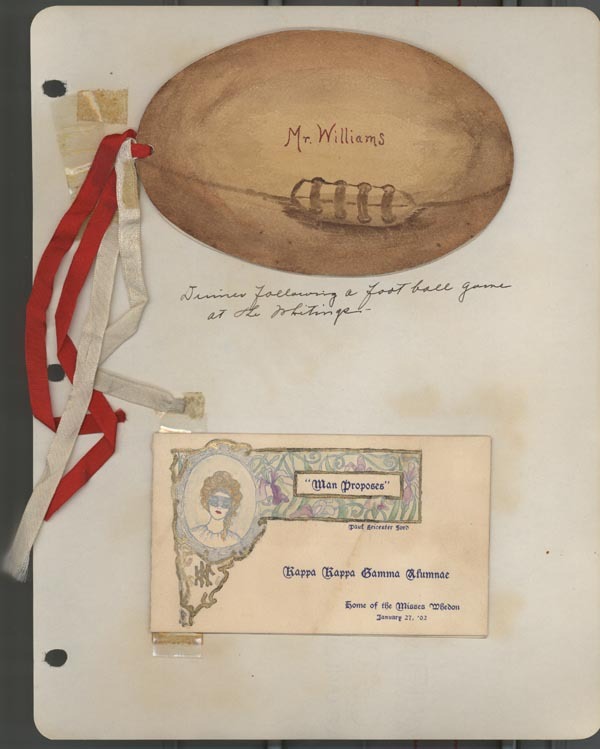 Mr. Williams
Dinner following a foot ball game
at the Whitings.-
"Man Proposes"
Paul Leicester Ford
Kappa Kappa Gamma Alumnae
Home of the Misses Whedon
January 27, '02